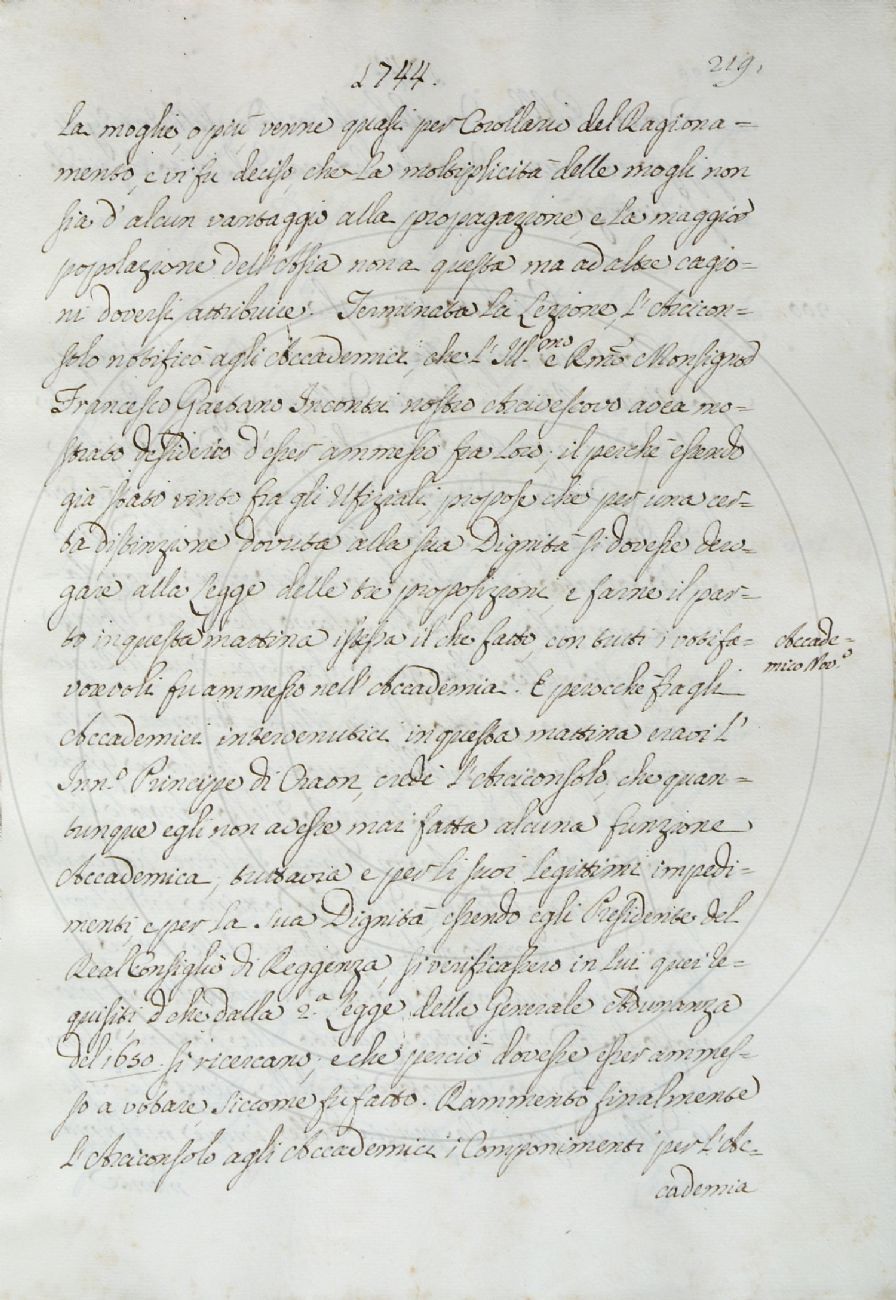 1744.
219.
la moglie, o più, venne quasi per Corollario del Ragiona=
mento, e vi fu deciso, che la moltiplicità delle mogli non
sia d'alcun vantaggio alla propagazione, e la maggior
popolazione dell'Assia non a questa ma ad altre cagio=
ni doversi attribuire. Terminata la Lezione, l'Arcicon=
solo notificò agli Accademici, che l'Ill.mo e Rmo Monsignor
Francesco Gaetano Incontri nostro Arcivescovo avea mo=
strato desiderio d'esser ammesso fra loro; il perchè essendo
già stato vinto fra gli Ufiziali propose che per una cer=
ta distinzione dovuta alla sua Dignità si dovesse dero=
gare alla Legge delle tre proposizioni, e farne il par=
to in questa mattina istessa il che fatto, con tutti i voti fa=
Accade=
mico Nov.o
vorevoli fu ammesso nell'Accademia. E perocchè fra gli
Accademici intervenutici in questa mattina eravi l'
Inn.o Principe di Craon, credè l'Arciconsolo, che quan=
tunque egli non avesse mai fatta alcuna funzione
Accademica, tuttavia e per li suoi legittimi impedi=
menti, e per la sua Dignità, essendo egli Presidente del
Real Consiglio di Reggenza, si verificassero in lui quei re=
quisiti, che dalla 2.a Legge della Generale Adunanza
del 1650. si ricercano; e che perciò dovesse esser ammes=
so a votare, siccome fu fatto. Rammentò finalmente
l'Arciconsolo agli Accademici i Componimenti per l'Ac=
cademia